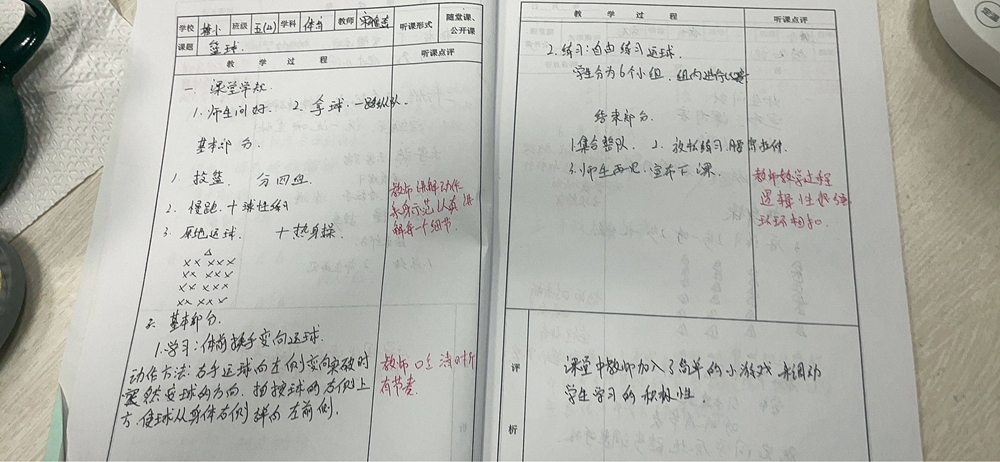 学校 班级 五(2) 学科 体育 教师 听课形式 随堂课、公开课
课题 篮球
教 学 过 程 听课点评
一、课堂常规
1.师生问好. 2.拿球.一路纵队.
基本部分.
1. 投篮. 分四组
2. 慢跑.十球性练习
3. 原地运球. 十热身操.
△
×× ×× ××
×× ×× ××
×× ×× ××
×× ×× ××
教师讲解动作
示范认真讲
解每一个细节.
二.基本部分.
1.学习:体前换手变向运球.
动作方法:右手运球向左侧变向突破时
突然变球的方向.拍按球的右侧上
方.使球从身体右侧弹向左前侧.
教师口令清晰
有节奏
教 学 过 程 听课点评
2.练习:自由练习运球.
学生分为6个小组.组内进行
结束部分.
1.集合整队. 2.放松练习.
3.师生再见.宣布下课.
教师教学过程
逻辑性很强
环环相扣.
评析
课堂中教师加入了简单的小游戏来调动
学生学习的积极性.